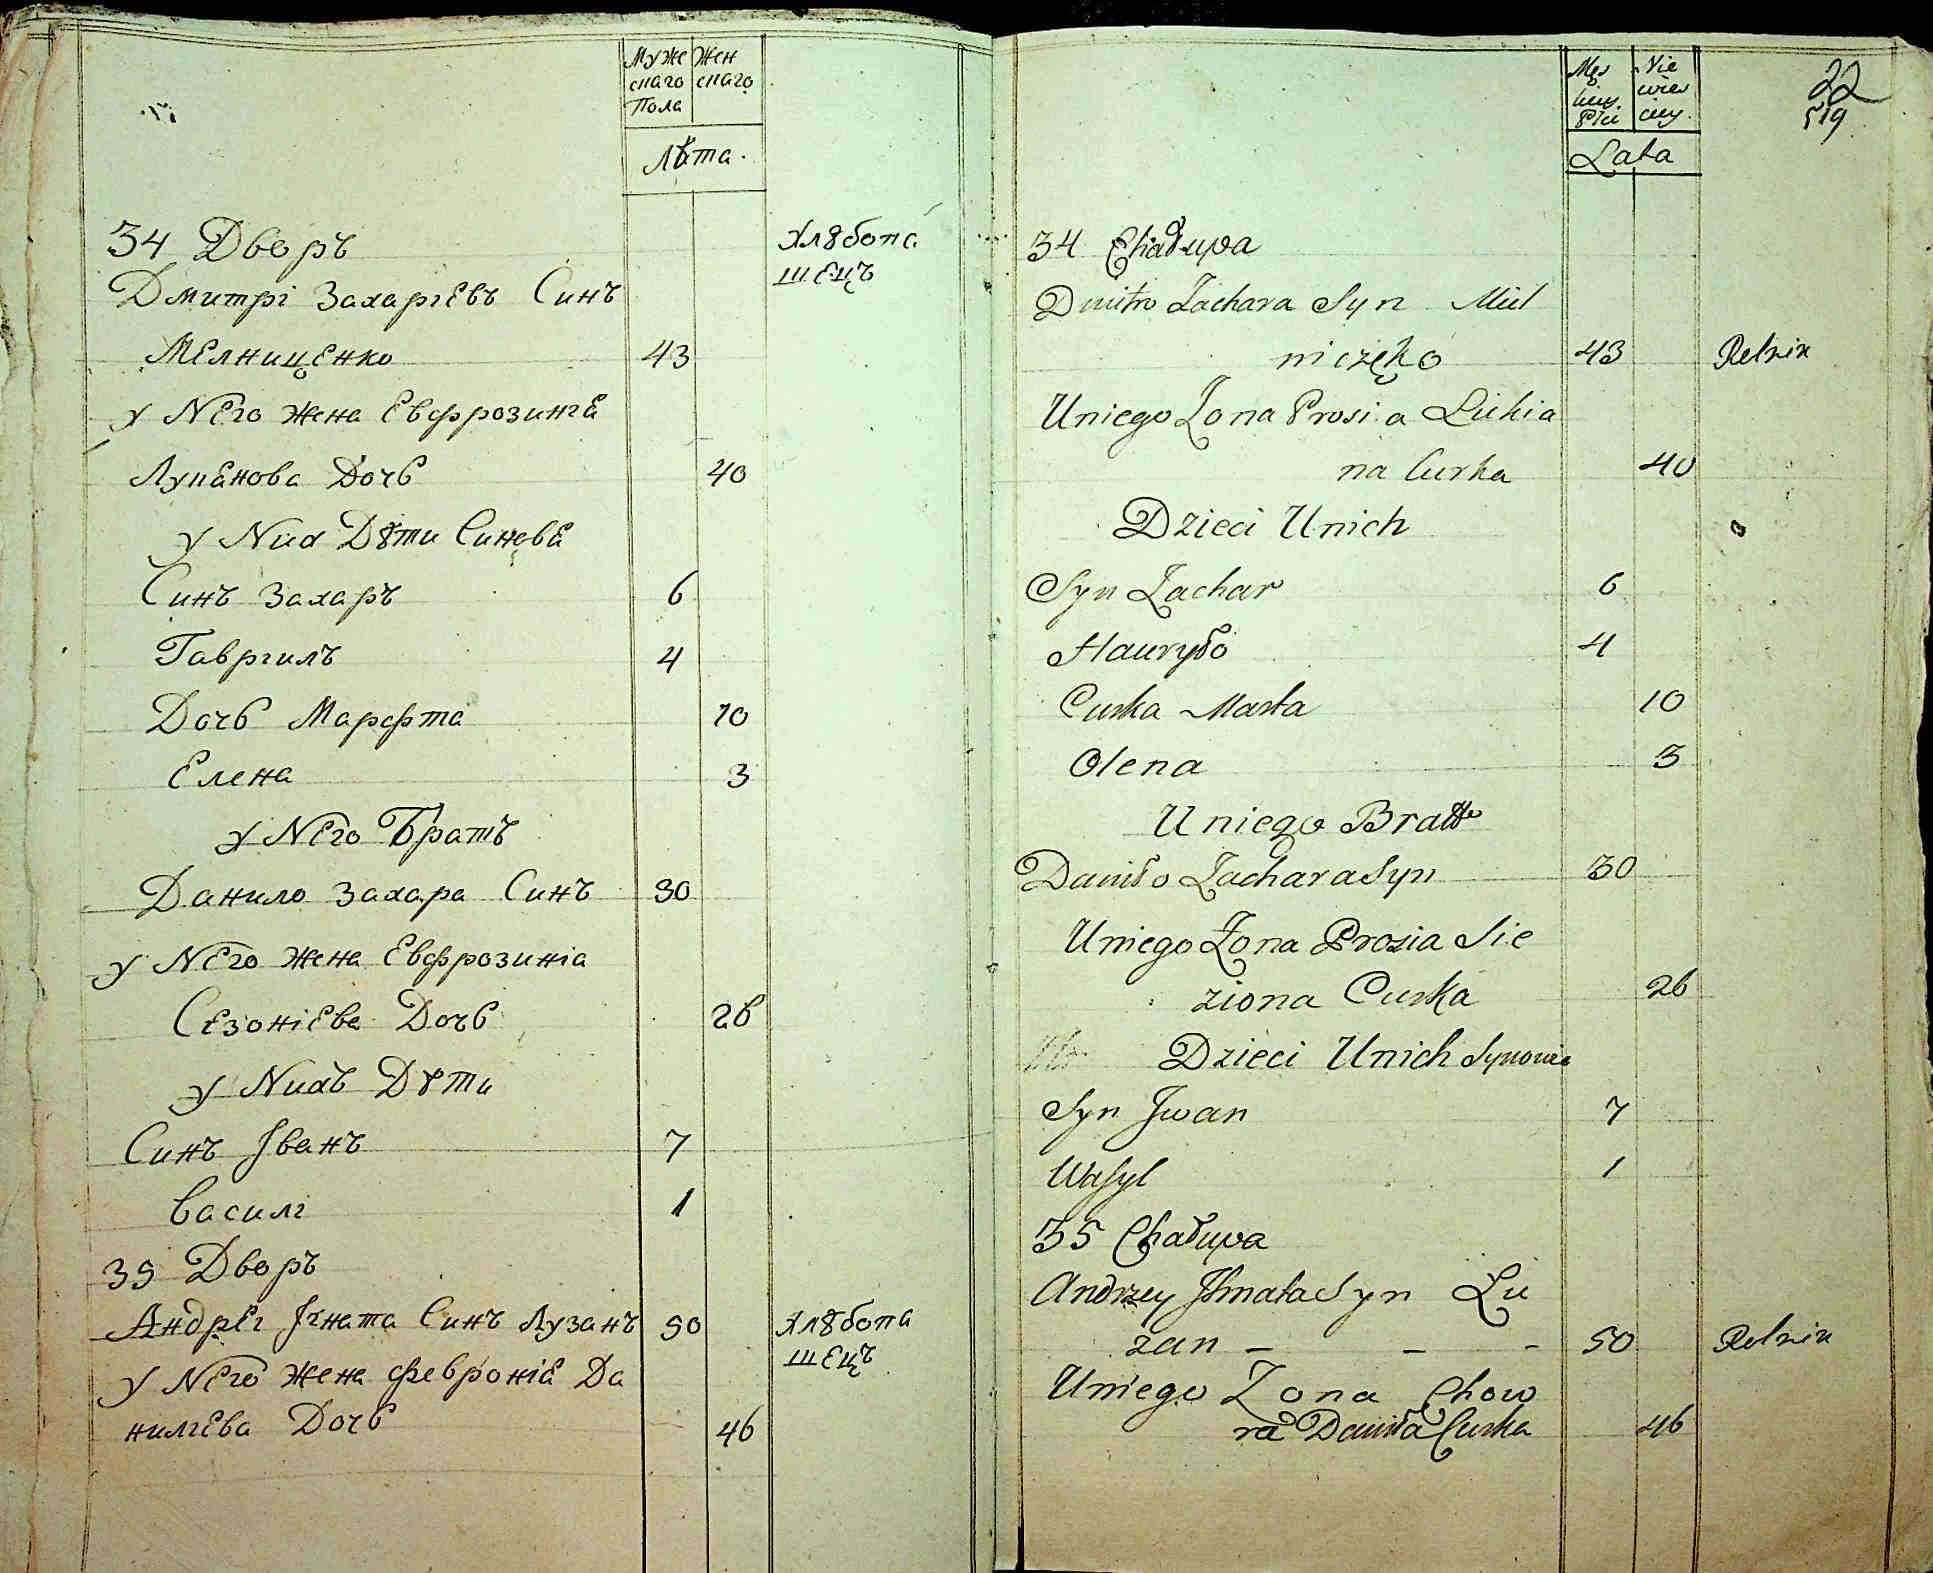 Муже Жен
скаго скаго
Пола
Лѣта.
34 Дворъ
Хлѣбопа
шецъ
Дмитрі Захаріевъ Синъ
Мелниценко 43
у Него жена Евфрозиніа
Лукѣнова Дочь 40
у Них Дѣти Синова
Синъ Захаръ 6
Гавріилъ 4
Дочь Марфта 10
Елена 3
у Него Братъ
Данило Захара Синъ 30
у Него жена Евфрозиніа
Сезоніева Дочь 26
у Нихъ Дѣти
Синъ Іванъ 7
Василі 1
35 Дворъ
Андреі Ігната Синъ Лузанъ 50
Хлѣбопа
шецъ
у Него жена февроніа Да
ниліева Дочь 46
22
519
Męs Nie
kiey wies
Płci ciey.
Lata
34 Chałupa
Dmitro Zachara Syn Miel
niczęko 43 Rolnik
Uniego Zona Prosi a Lukia
na Curka 40
Dzieci Unich
Syn Zachar 6
Hauryło 4
Curka Marta 10
Olena 3
Uniego Bratt
Daniło Zachara Syn 30
Uniego Zona Prozia Sie
ziona Curka 26
Dzieci Unich Synowie
Syn Jwan 7
Wasyl 1
35 Chałupa
Andrzey Jhnata Syn Lu
zan - - - 50 Rolnik
Uniego Zona Chow
ra Daniła Curka 46